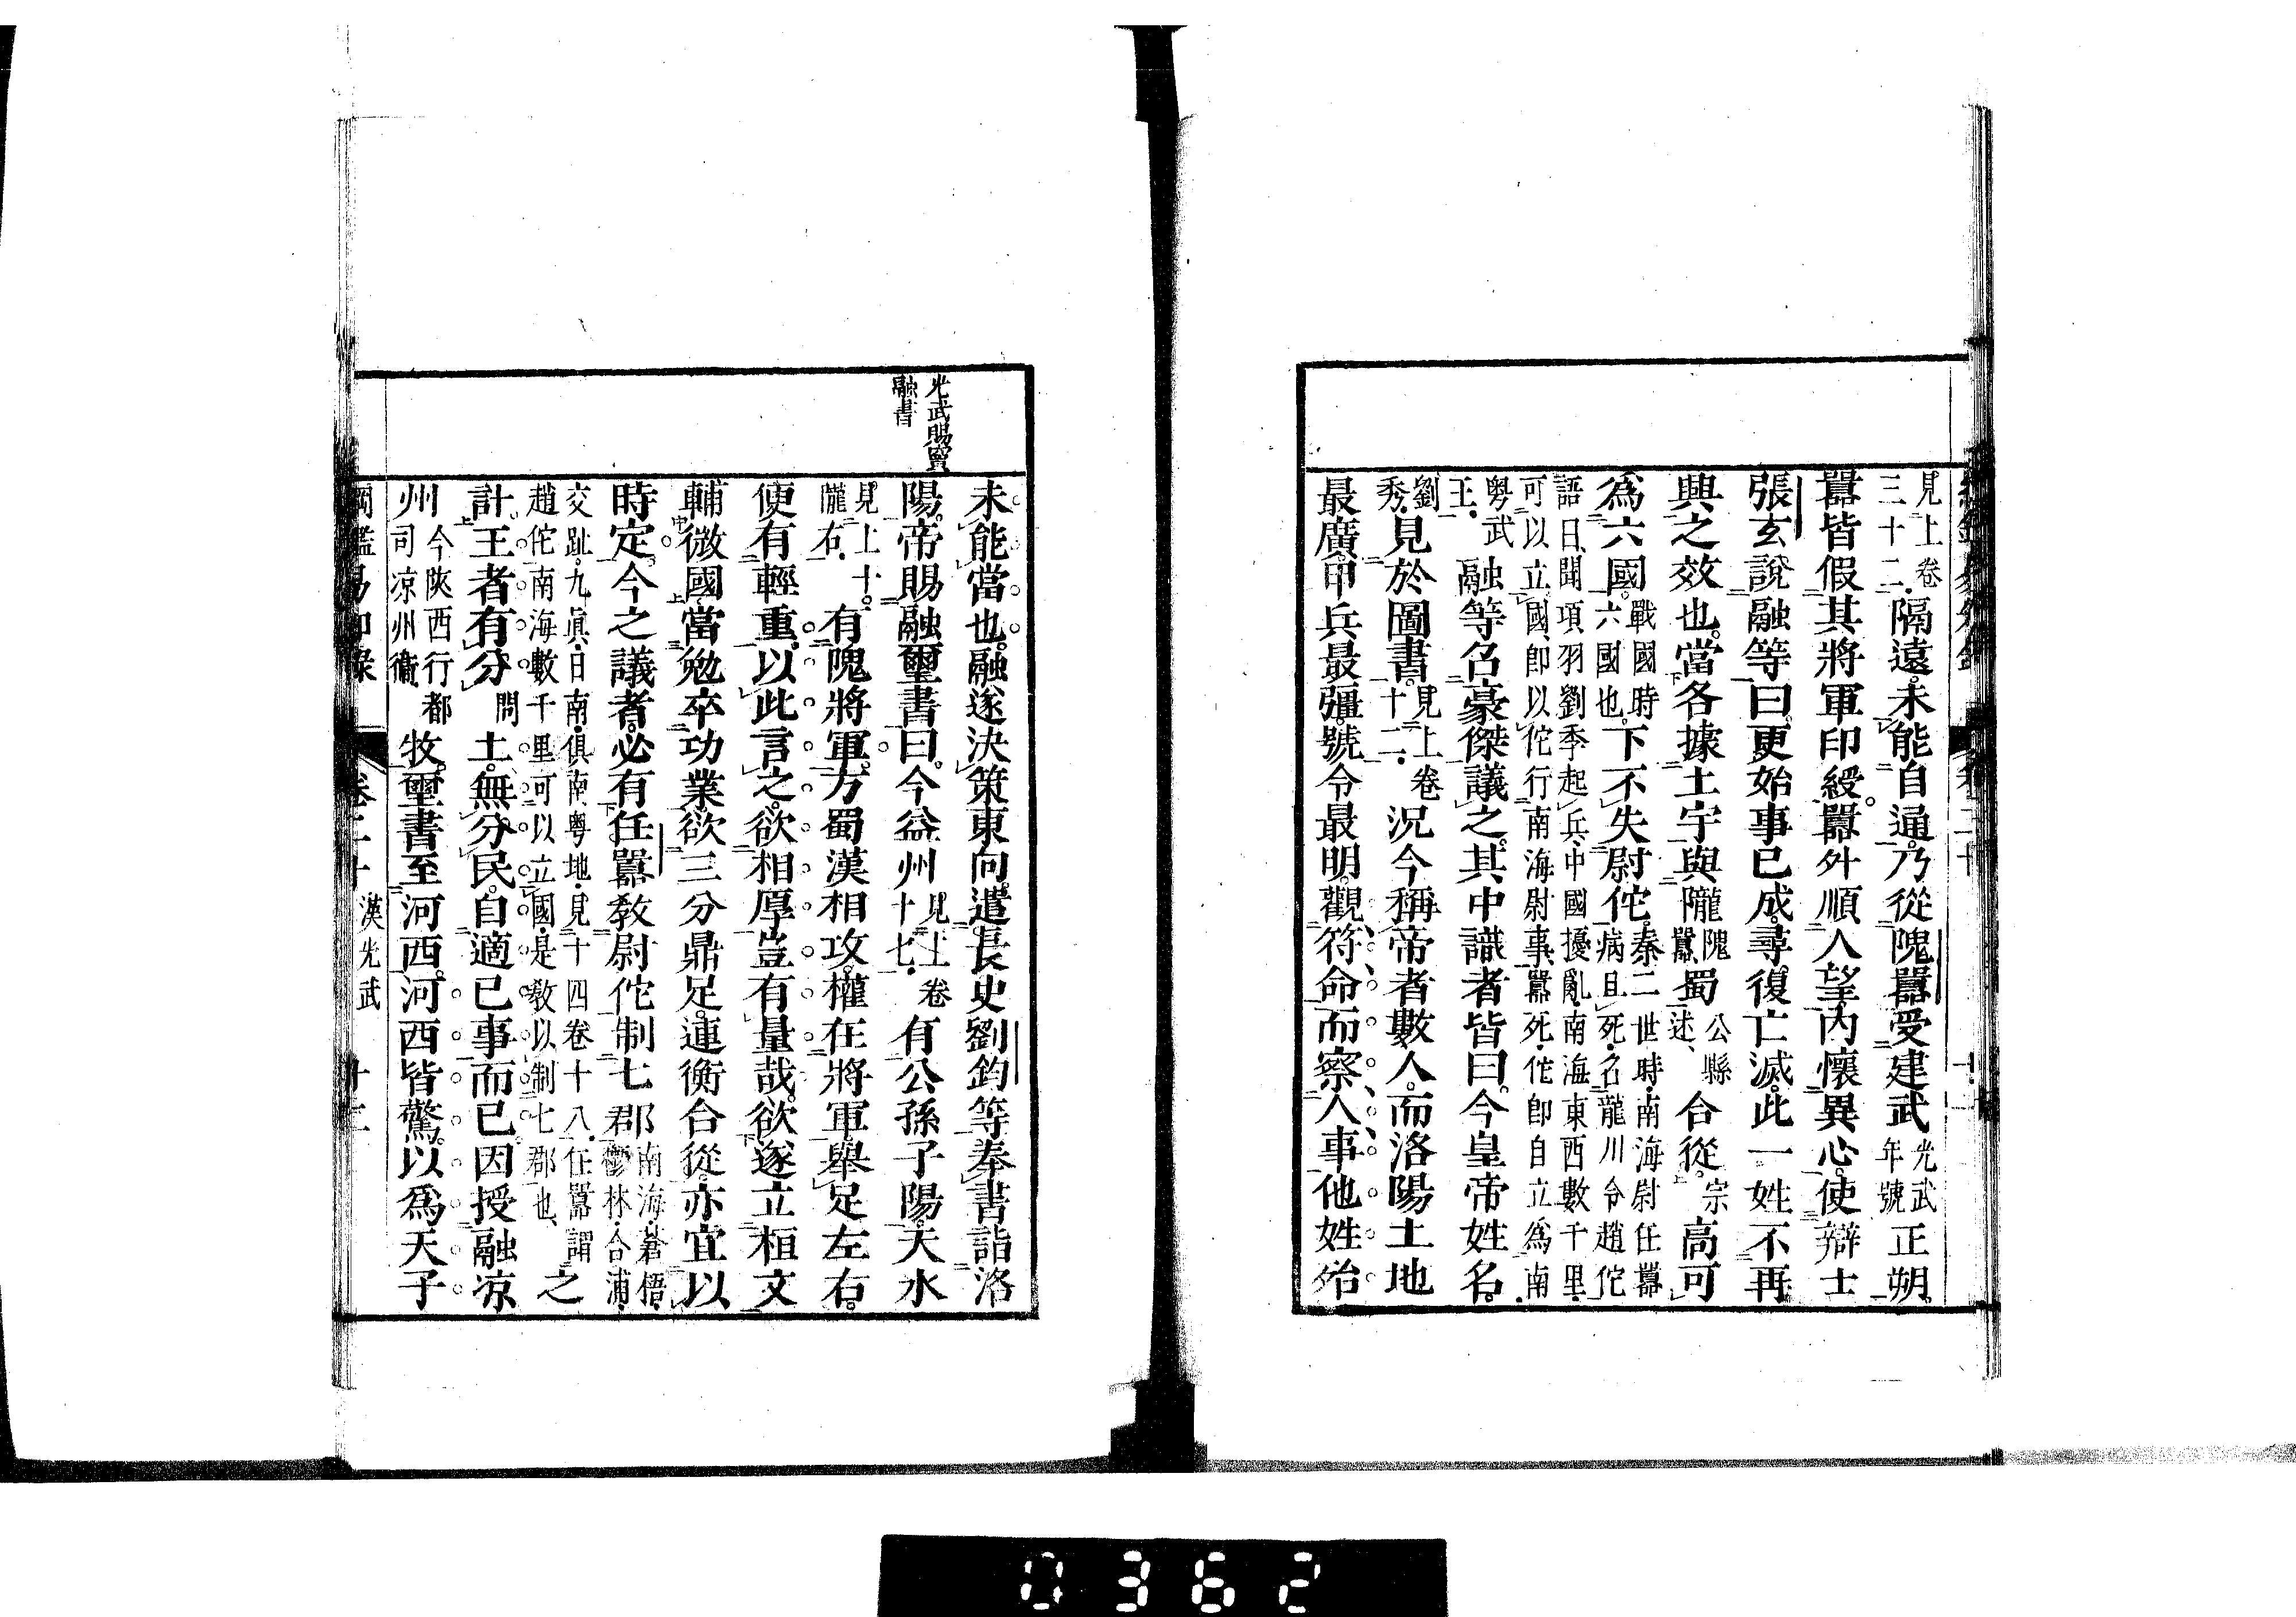 見上卷三十二隔遠。未能自通。乃從隗囂受建武光武年號正朔。
囂皆假其將軍印綬。囂外順人望。内懷異心。使辯士
張玄說融等曰。更始事已成。尋復亡滅。此一姓不再
興之效也。當各據土宇。與隴隗囂蜀公孫述合從。高可
爲六國。戰國時六國也。下不失尉佗。秦二世時南海尉任囂病且死。名龍川令趙佗
語曰聞項羽劉季起兵中國擾亂南海東西數千里
可以立國卽以佗行南海尉事囂死佗卽自立爲南
粤武王融等召豪傑議之。其中識者皆曰。今皇帝姓名。
劉秀見於圖書。見上卷十二況今稱帝者數人。而洛陽土地
最廣。甲兵最彊。號令最明。觀符命而察人事。他姓殆
光武賜竇
融書
未能當也。融遂決策東向。遣長史劉鈞等奉書詣洛
陽。帝賜融璽書曰。今益州見上卷十七有公孫子陽。天水
見上十隴右有隗將軍。方蜀漢相攻。權在將軍。舉足左右。
便有輕重。以此言之。欲相厚豈有量哉。欲遂立桓文
輔微國。當勉卒功業。欲三分鼎足。連衡合從。亦宜以
時定。今之議者。必有任囂教尉佗制七郡南海蒼梧鬱林合浦
交趾九眞日南俱南粤地見十四卷十八任囂謂趙佗南海數千里可以立國是教以制七郡也之
計。王者有分土。無分民。自適己事而已。因授融凉
州今陝西行都司凉州衞牧。璽書至河西。河西皆驚。以爲天子
綱鑑易知錄 卷二十 漢光武 十二
0362